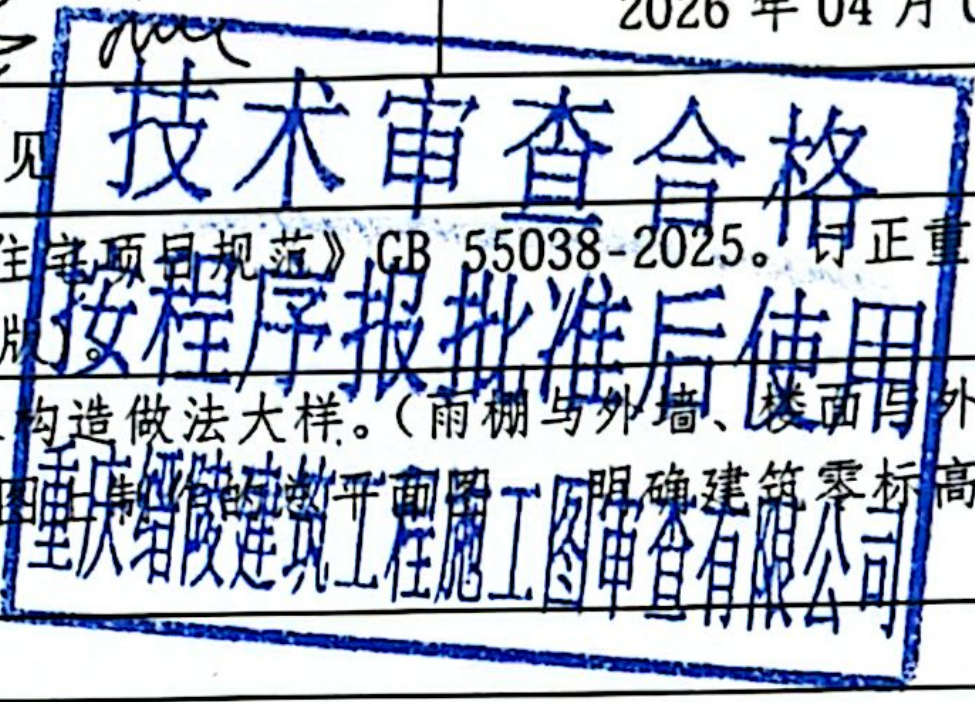 2026 年 04 月
技术审查合格
见
住宅项目规范》GB 55038-2025。订正重
按程序报批准后使用
版)。
构造做法大样。（雨棚与外墙、楼面与外
平面图 明确建筑零标高
重庆缙陵建筑工程施工图审查有限公司